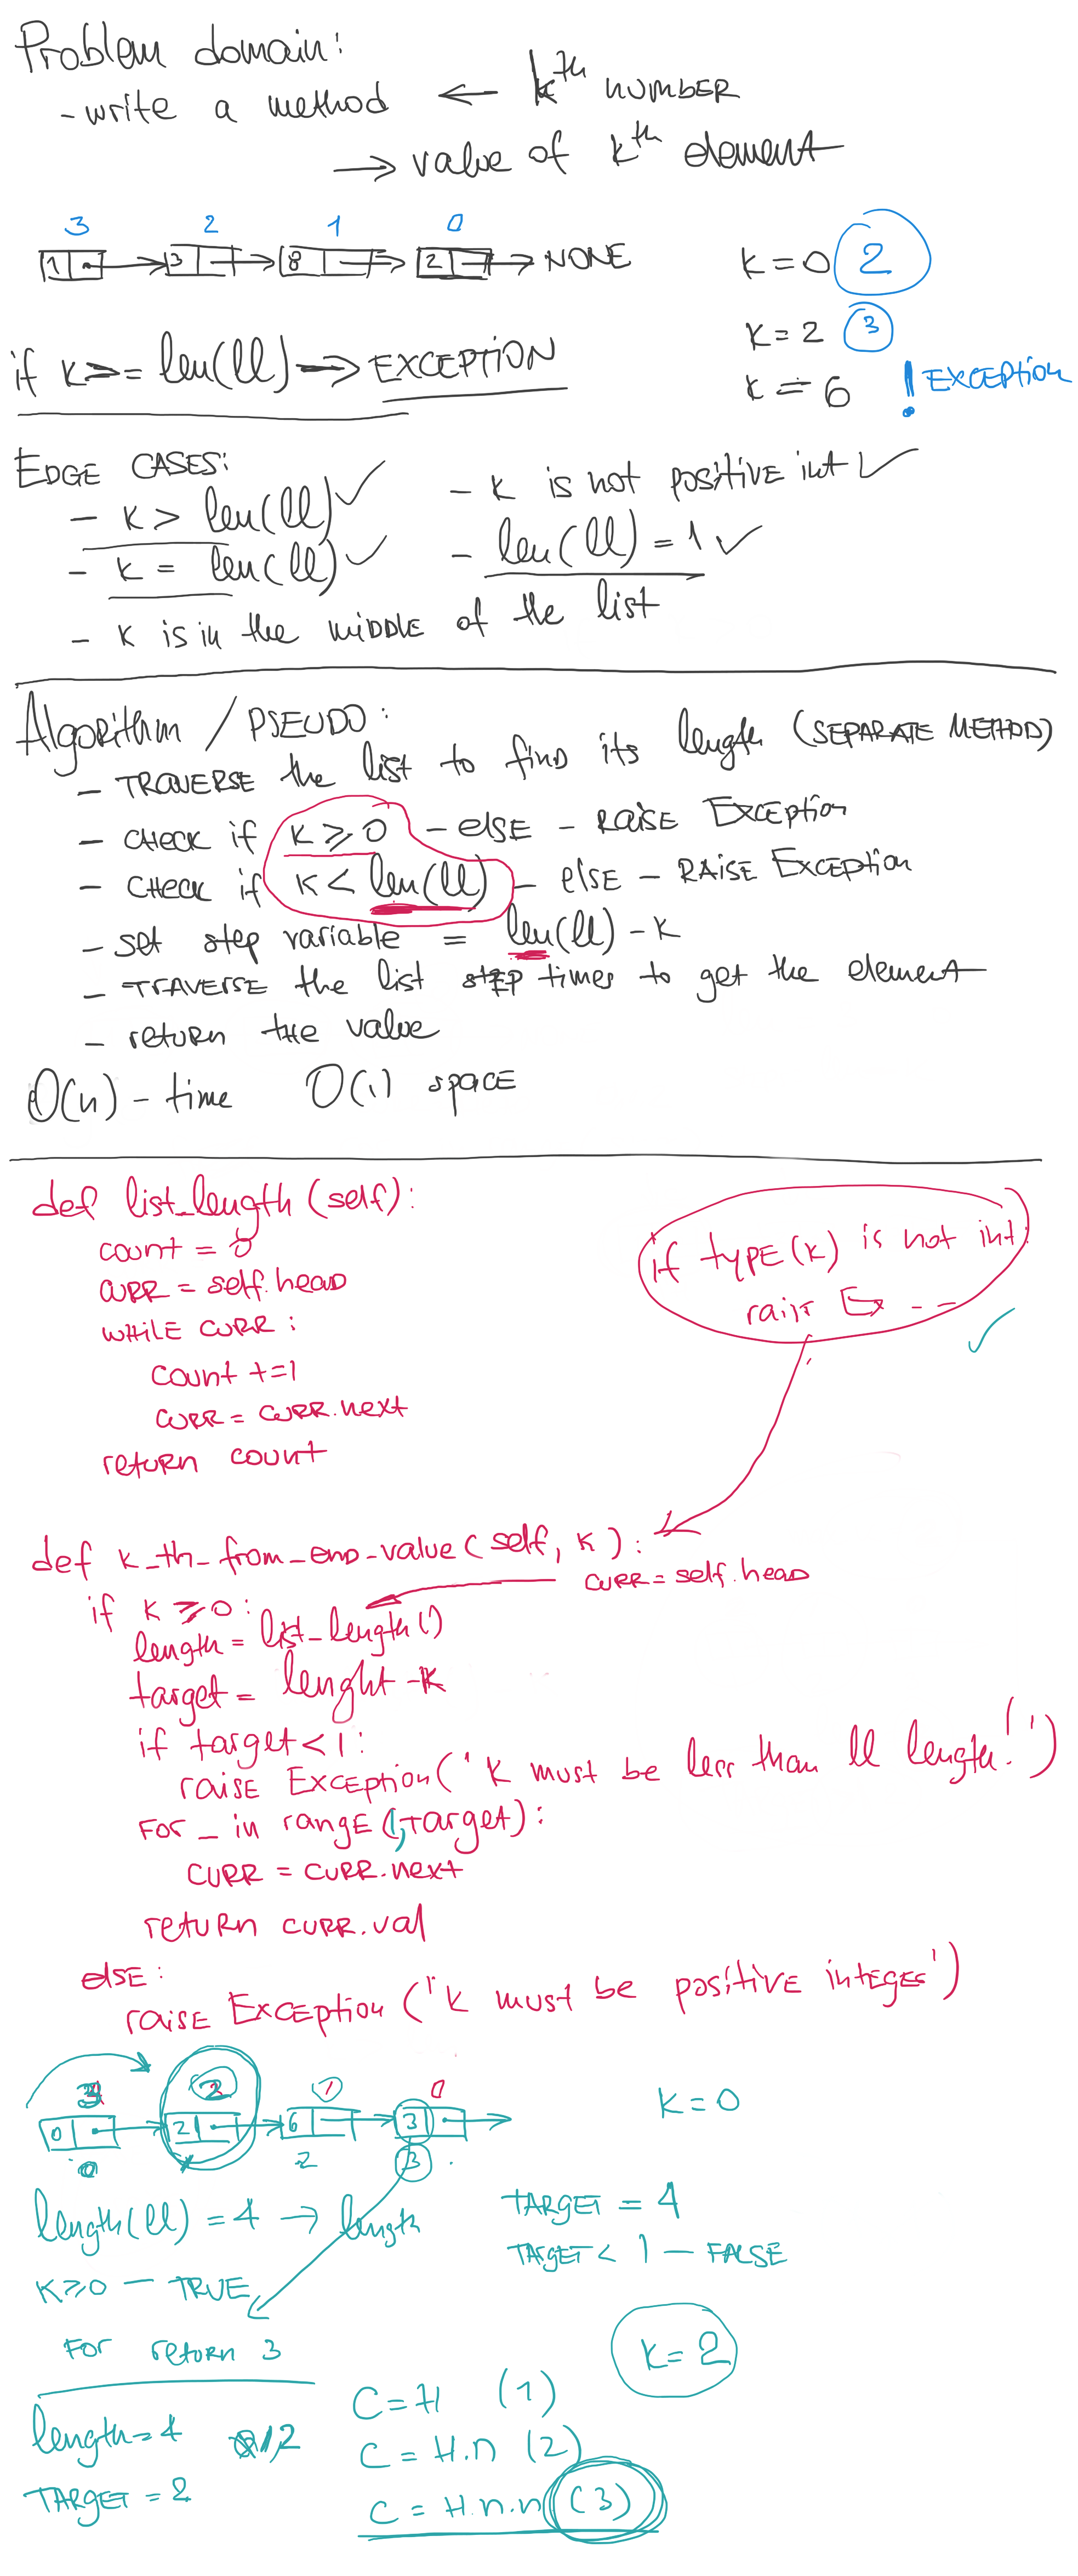 Problem domain:
- write a method ← kth number
→ value of kth element
3 2 1 0
1 → 3 → 8 → 2 → NONE
k = 0 2
k = 2 3
k = 6 ! Exception
if k >= len(ll) → EXCEPTION
EDGE CASES:
- k > len(ll) ✓
- k = len(ll) ✓
- k is in the middle of the list
- k is not positive int ✓
- len(ll) = 1 ✓
Algorithm / PSEUDO:
- TRAVERSE the list to find its length (SEPARATE METHOD)
- check if k ⩾ 0 - else - Raise Exception
- check if k < len(ll) - else - Raise Exception
- set step variable = len(ll) - k
- TRAVERSE the list step times to get the element
- return the value
O(n) - time O(1) space
def list_length (self):
count = 0
curr = self.head
while curr:
count +=1
curr = curr.next
return count
if type(k) is not int:
raise Ex - -
✓
def k_th_from_end_value(self, k):
curr = self.head
if k ⩾ 0:
length = list_length()
target = lenght - k
if target < 1:
raise Exception('k must be less than ll length!')
for _ in range(1, target):
curr = curr.next
return curr.val
else:
raise Exception('k must be positive integer')
3 2 1 0
0 → 2 → 6 → 3 →
0 2 3
k = 0
length(ll) = 4 → length
TARGET = 4
TARGET < 1 - FALSE
k ⩾ 0 - TRUE
For return 3
k = 2
length = 4
TARGET = 2
C = H (1)
C = H.n (2)
C = H.n.n (3)